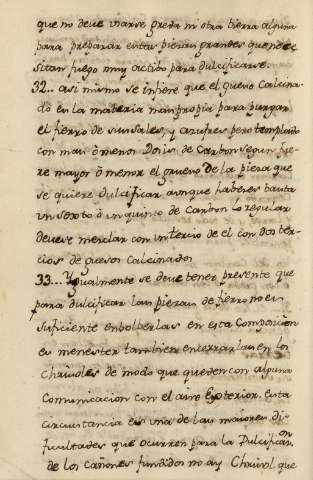 que no deve usarse greda ni otra tierra alguna
para preparar estas piesas grandes que nece
sitan fuego muy actibo para dulcificarse.
32... asi mismo se infiere que el gueso Calcina
do es la materia mas propia para purgar
el fierro de sus sales, y azufres pero templado
con mas ô menos Dosis de Carbon segun fue-
re mayor ô menor el grueso de la piesa que
se quiere dulcificar aunque haberes basta
un sexto ô un quinto de Carbon lo regular
deverse mesclar con un tercio de el con dos ter-
cios de guesos Calcinados
33... Ygualmente se deve tener presente que
para dulcificar las piesas de fierro no es
suficiente enbolberlas en esta Composicion
es menester tambien encerrarlas en los
Chrisoles de modo que queden con alguna
Comunicacion con el aire Exterior. Esta
circustancia es una de las maiores di-
ficultades que ocurren para la Dulcificacion
de los cañones fundidos no ay Chrisol que